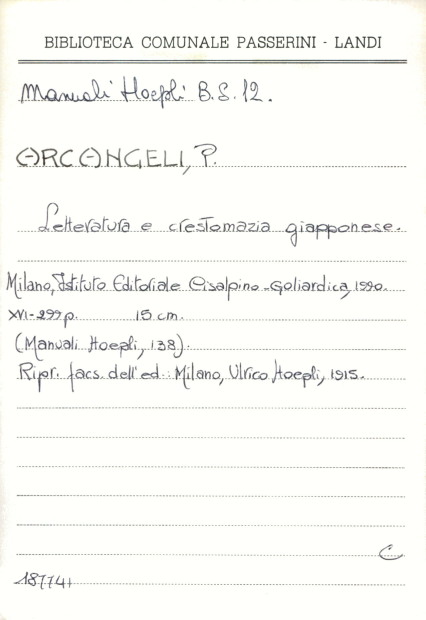 BIBLIOTECA COMUNALE PASSERINI - LANDI
Manuali Hoepli B.S.12.
ARCANGELI, P.
Letteratura e crestomazia giapponese.
Milano, Istituto Editoriale Cisalpino-Goliardica, 1990.
XVI-299 p. 15 cm.
(Manuali Hoepli, 138).
Ripr. facs. dell'ed.: Milano, Ulrico Hoepli, 1915.
C
187741